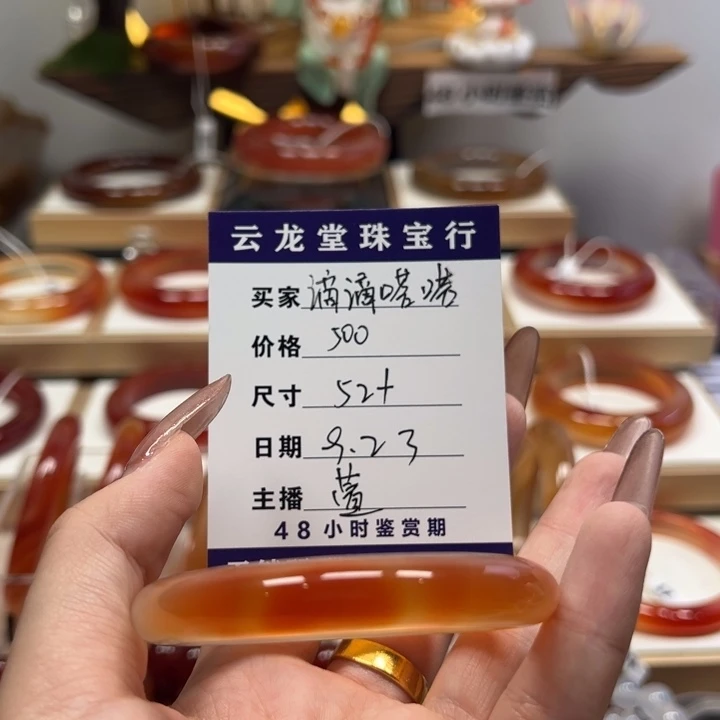 云龙堂珠宝行
买家 滴滴嗒嗒
价格 500
尺寸 52+
日期 9.23
主播 萱
48小时鉴赏期